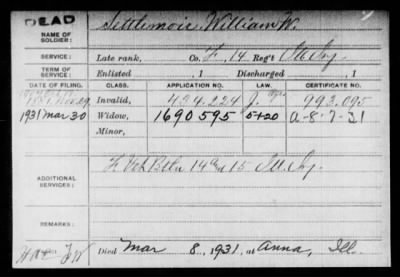 DEAD
NAME OF SOLDIER: Settlemoir, William W.
SERVICE: Late rank, Co. F, 14 Reg't Ill Inf
TERM OF SERVICE: Enlisted , 1 Discharged , 1
DATE OF FILING. CLASS. APPLICATION NO. CERTIFICATE NO.
Invalid, 434.224 993.095
1931 Mar 30 Widow, 1690595 5+20 A-8-7-31
Minor,
ADDITIONAL SERVICES: F Vet Battn 14 & 15 Ill. Inf.
REMARKS:
Died Mar 8, 1931, at Anna, Ill.